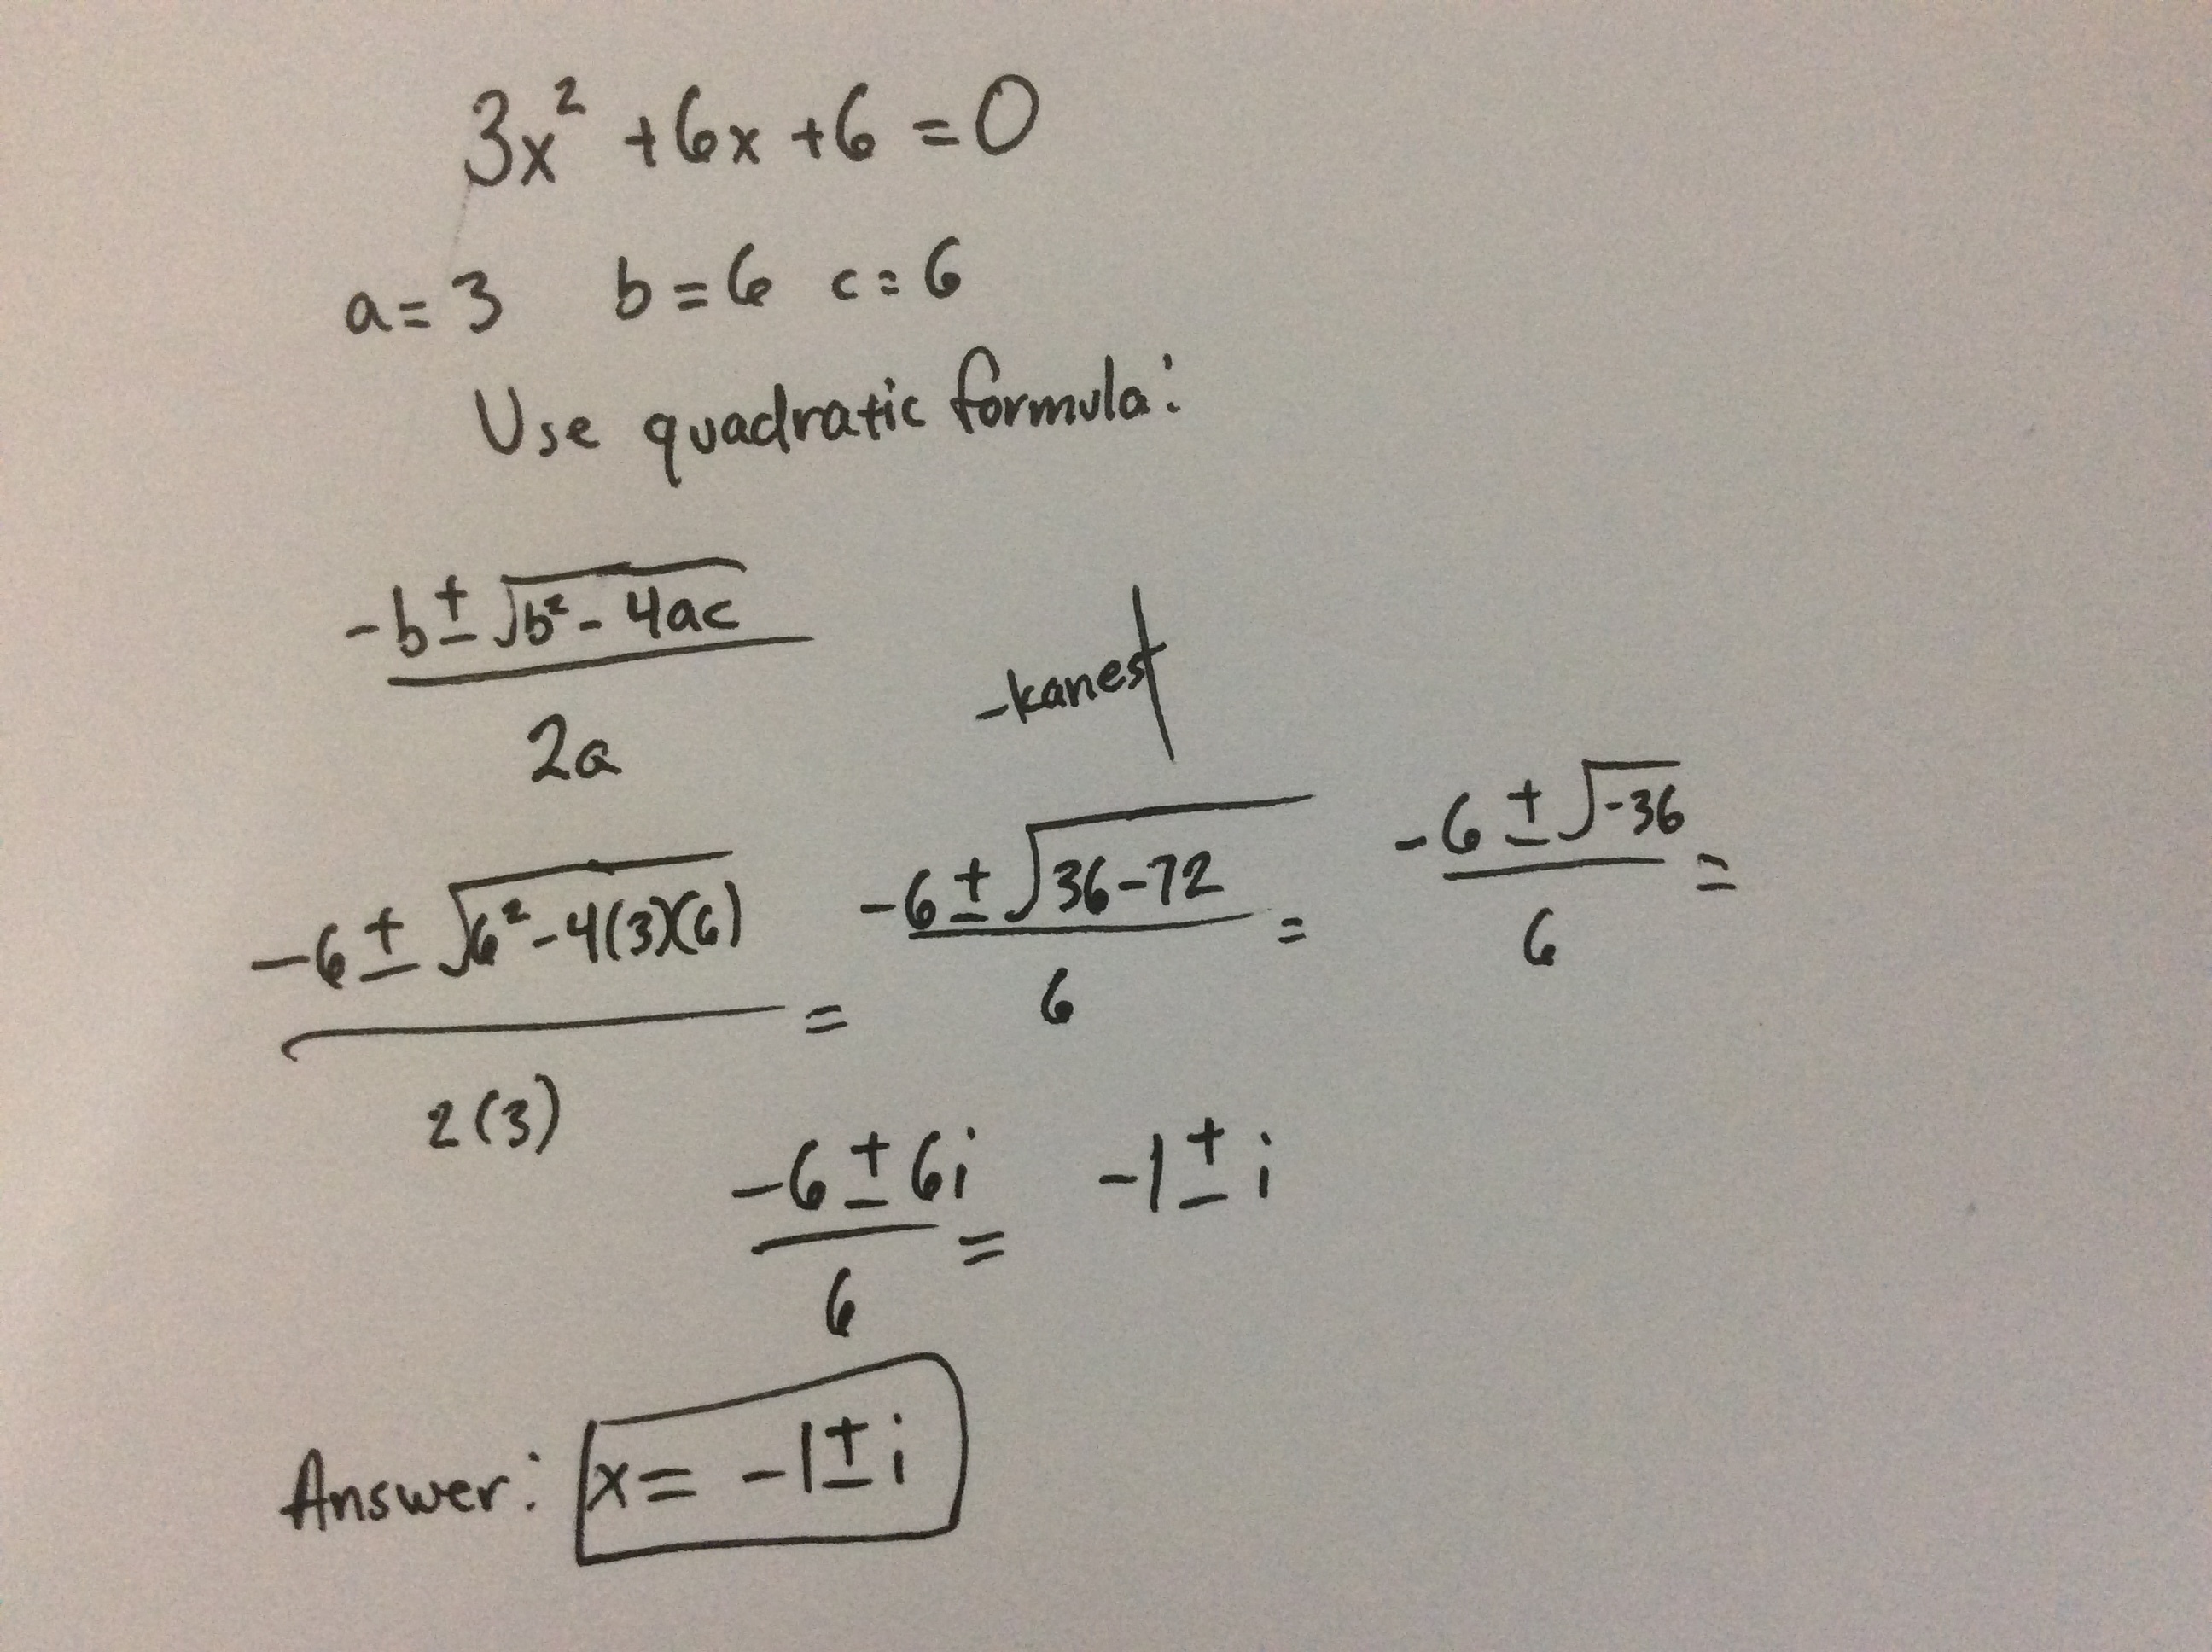 3x² + 6x + 6 = 0
a = 3 b = 6 c = 6
Use quadratic formula:
-b ± √(b² - 4ac) / 2a
-kanest
-6 ± √(6² - 4(3)(6)) / 2(3) = -6 ± √(36 - 72) / 6 = -6 ± √(-36) / 6 =
-6 ± 6i / 6 = -1 ± i
Answer: x = -1 ± i